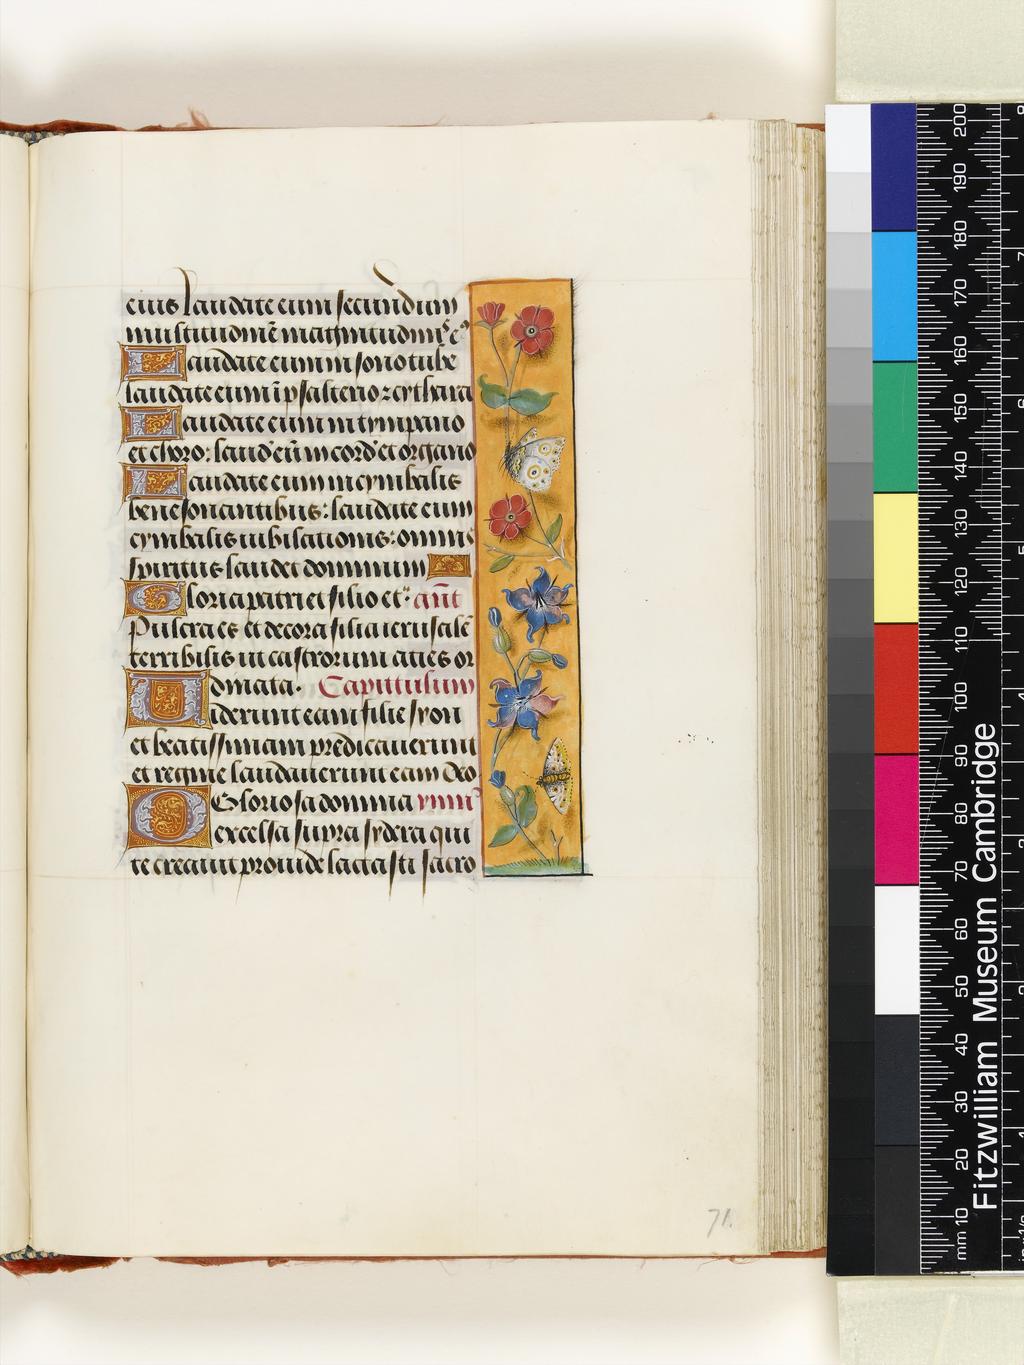 eius laudate eum secundum
multitudinē magnitudinis eˀ
Laudate eum in sono tube
laudate eum ī psalterio ⁊ cythara
Laudate eum in tympano
et choro: laud' eū in cord' et organo
Laudate eum in cymbalis
benesonantibus: laudate eum
cymbalis iubilationis: omnis
spiritus laudet dominum
Gloria patri et filio et: añt
Pulcra es et decora filia ierusalē
terribilis ut castrorum acies or
dinata. Capitulum
Viderunt eam filie syon
et beatissimam predicauerunt
et regine laudauerunt eam deo
O Gloriosa domina ymnˀ
excelsa supra sydera qui
te creauit prouide lactasti sacro
71.
Fitzwilliam Museum Cambridge
mm 10 20 30 40 50 60 70 80 90 100 110 120 130 140 150 160 170 180 190 200